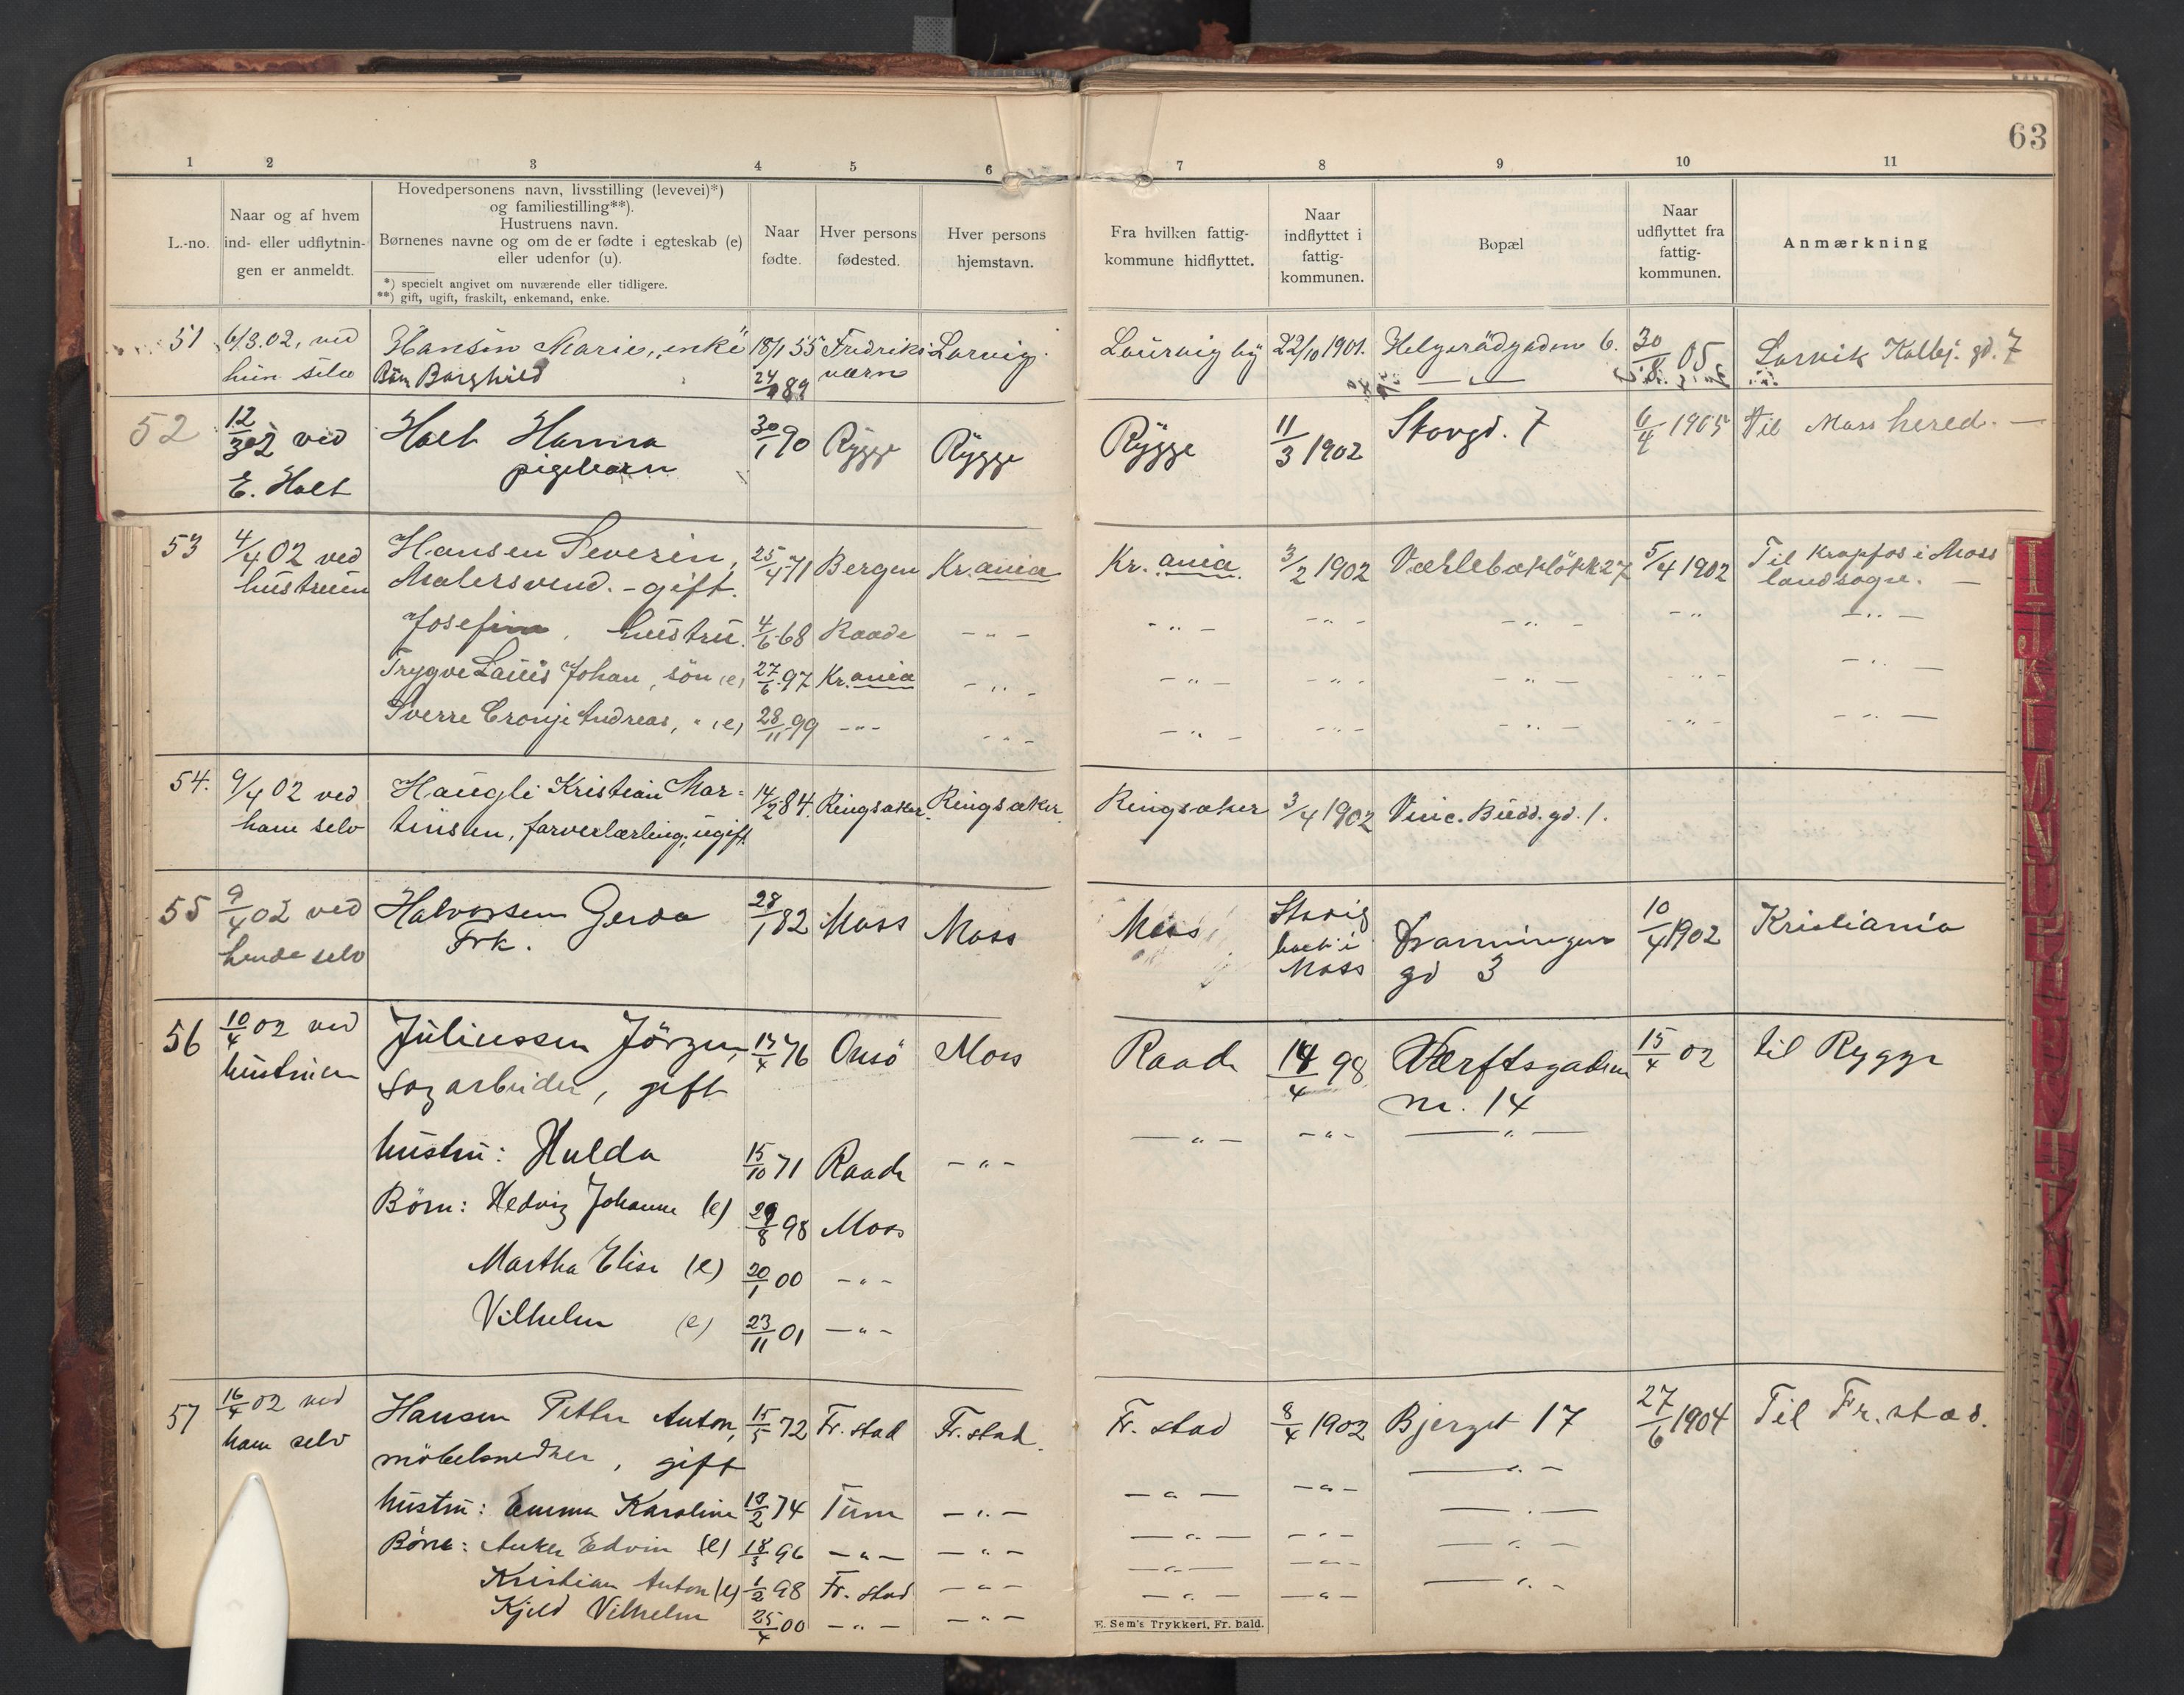 63
1 2 3 4 5 6 7 8 9 10 11
L.-no.
Naar og af hvem
ind- eller udflytnin-
gen er anmeldt.
Hovedpersonens navn, livsstilling (levevei)*)
og familiestilling**).
Hustruens navn.
Børnenes navne og om de er fødte i egteskab (e)
eller udenfor (u).
*) specielt angivet om nuværende eller tidligere.
**) gift, ugift, fraskilt, enkemand, enke.
Naar
fødte.
Hver persons
fødested.
Hver persons
hjemstavn.
Fra hvilken fattig-
kommune hidflyttet.
Naar
indflyttet i
fattig-
kommunen.
Bopæl
Naar
udflyttet fra
fattig-
kommunen.
Anmærkning
51 6/3.02, ved Hansen Marie, enke 18/1 55 Fredriks Larvig. Laurvig by 22/10 1901. Helgerødgaden 6. 30/8 05 Larvik Kolbej. gd. 7
hun selv Barn Borghild 24/9 89 værn — " —
52 12/3 02 ved Holt Hanna 30/1 90 Rygge Rygge Rygge 11/3 1902 Storgd. 7 6/4 1905 Til Moss hered. —
E. Holt pigebarn
53 4/4 02 ved Hansen Severin, 25/4 71 Bergen Kr.ania Kr. ania 3/2 1902 Værlebakløkk 27 5/4 1902 Til Krapfos i Moss
hustruen Malersvend. - gift. landsogn. —
Josefine, hustru. 4/6 68 Raade - " - - " - - " - - " - - " - - " -
Trygve Lauis Johan, søn (e) 27/6 97 Kr.ania - " - - " - - " - - " - - " - - " -
Sverre Cronje Andreas, " (e) 28/11 99 - " - - " - - " - - " - - " - - " - - " -
54. 9/4 02 ved Haugli Kristian Mar= 14/2 84. Ringsaker. Ringsaker. Ringsaker 3/4 1902 Vinc. Budd. gd. 1.
ham selv tinsen, farverlærling, ugift
55 9/4 02 ved Halvorsen Gerda 28/1 82 Moss Moss Moss Stadig Dronningens 10/4 1902 Kristiania
hende selv Frk. boet i gd 3
Moss
56 10/4 02 ved Juliussen Jörgen, 13/4 76 Onsö Moss Raade 14/4 98 Værftsgaden 15/4 02 til Rygge
hustruen Sagarbeider, gift nr. 14
hustru: Hulda 15/10 71 Raade - " - - " - - " - - " -
Börn: Hedvig Johanne (e) 29/8 98 Moss
Martha Elise (e) 20/1 00 - " -
Vilhelm (e) 23/11 01 - " -
57 16/4 02 ved Hansen Petter Anton, 15/5 72 Fr. stad Fr. stad. Fr. stad 8/4 1902 Bjerget 17 27/6 1904 Til Fr. stad.
ham selv möbelsnedker, gift
hustru: Emma Karoline 13/2 74 Tune - " - - " - - " - - " -
Börn: Anker Edvin (e) 18/3 96 - " - - " - - " - - " - - " -
Kristian Anton (e) 1/2 98 Fr. stad - " - - " - - " - - " -
Kjeld Vilhelm 25/4 00 - " - - " - - " - - " - - " -
E. Sem's Trykkeri, Fr. hald.